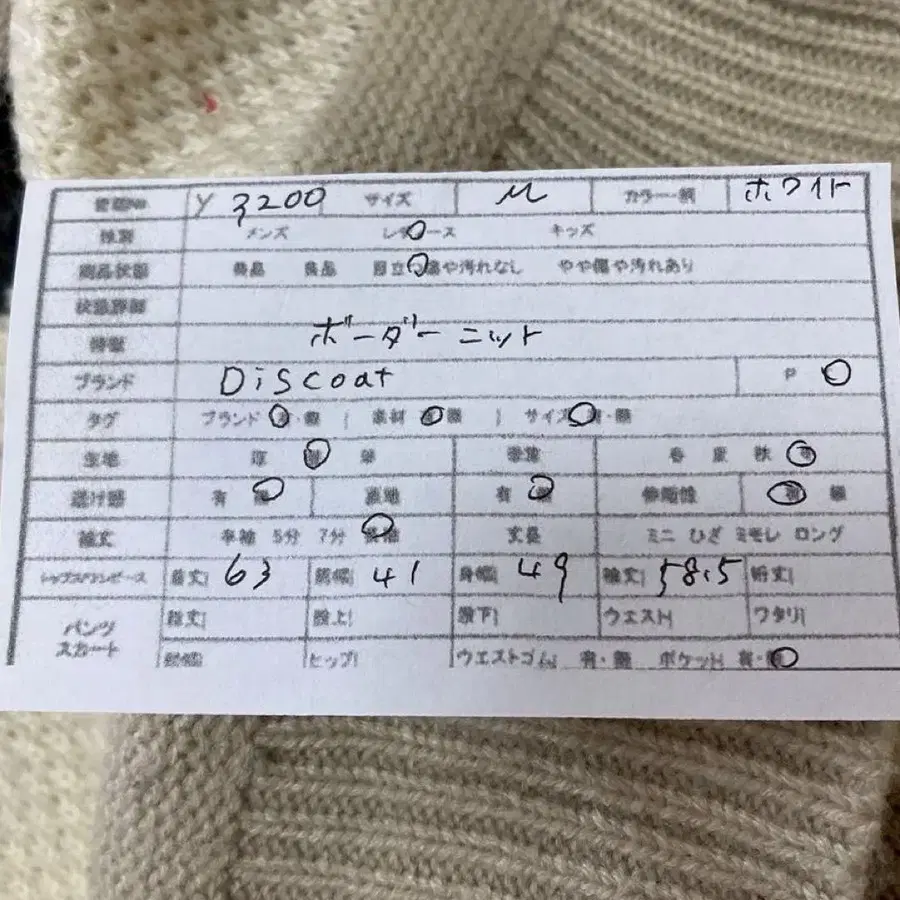 管理No Y 3200 サイズ M カラー・柄 ホワイト
種別 メンズ レディース キッズ
商品状態 美品 良品 目立つ傷や汚れなし やや傷や汚れあり
状態詳細
特徴 ボーダーニット
ブランド Discoat P
タグ ブランド 有・無 | 素材 有・無 | サイズ 有・無
生地 厚 薄 季節 春 夏 秋 冬
透け感 有 無 裏地 有 無 伸縮性 有 無
袖丈 半袖 5分 7分 長袖 丈長 ミニ ひざ ミモレ ロング
トップス/ワンピース 着丈| 63 肩幅| 41 身幅| 49 袖丈| 58.5 裄丈|
パンツ スカート 総丈| 股上| 股下| ウエスト| ワタリ|
裾幅| ヒップ| ウエストゴム| 有・無 ポケット| 有・無